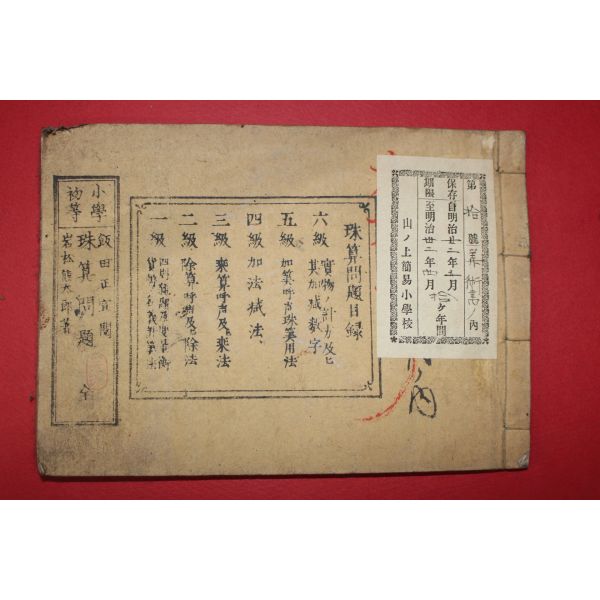 第拾號算術書ノ內
保存自明治廿二年五月
期限至明治卅二年四月
ケ年間
山ノ上簡易小學校
珠算問題目録
六級 實物ノ計方及ヒ
其加減數字
五級 加算呼声珠算用法
四級 加法減法
三級 乘算呼声及ヒ乘法
二級 除算呼声及ヒ除法
一級
小學
初等
飯田正宣閲
珠算問題 全
岩松
太郎著
内